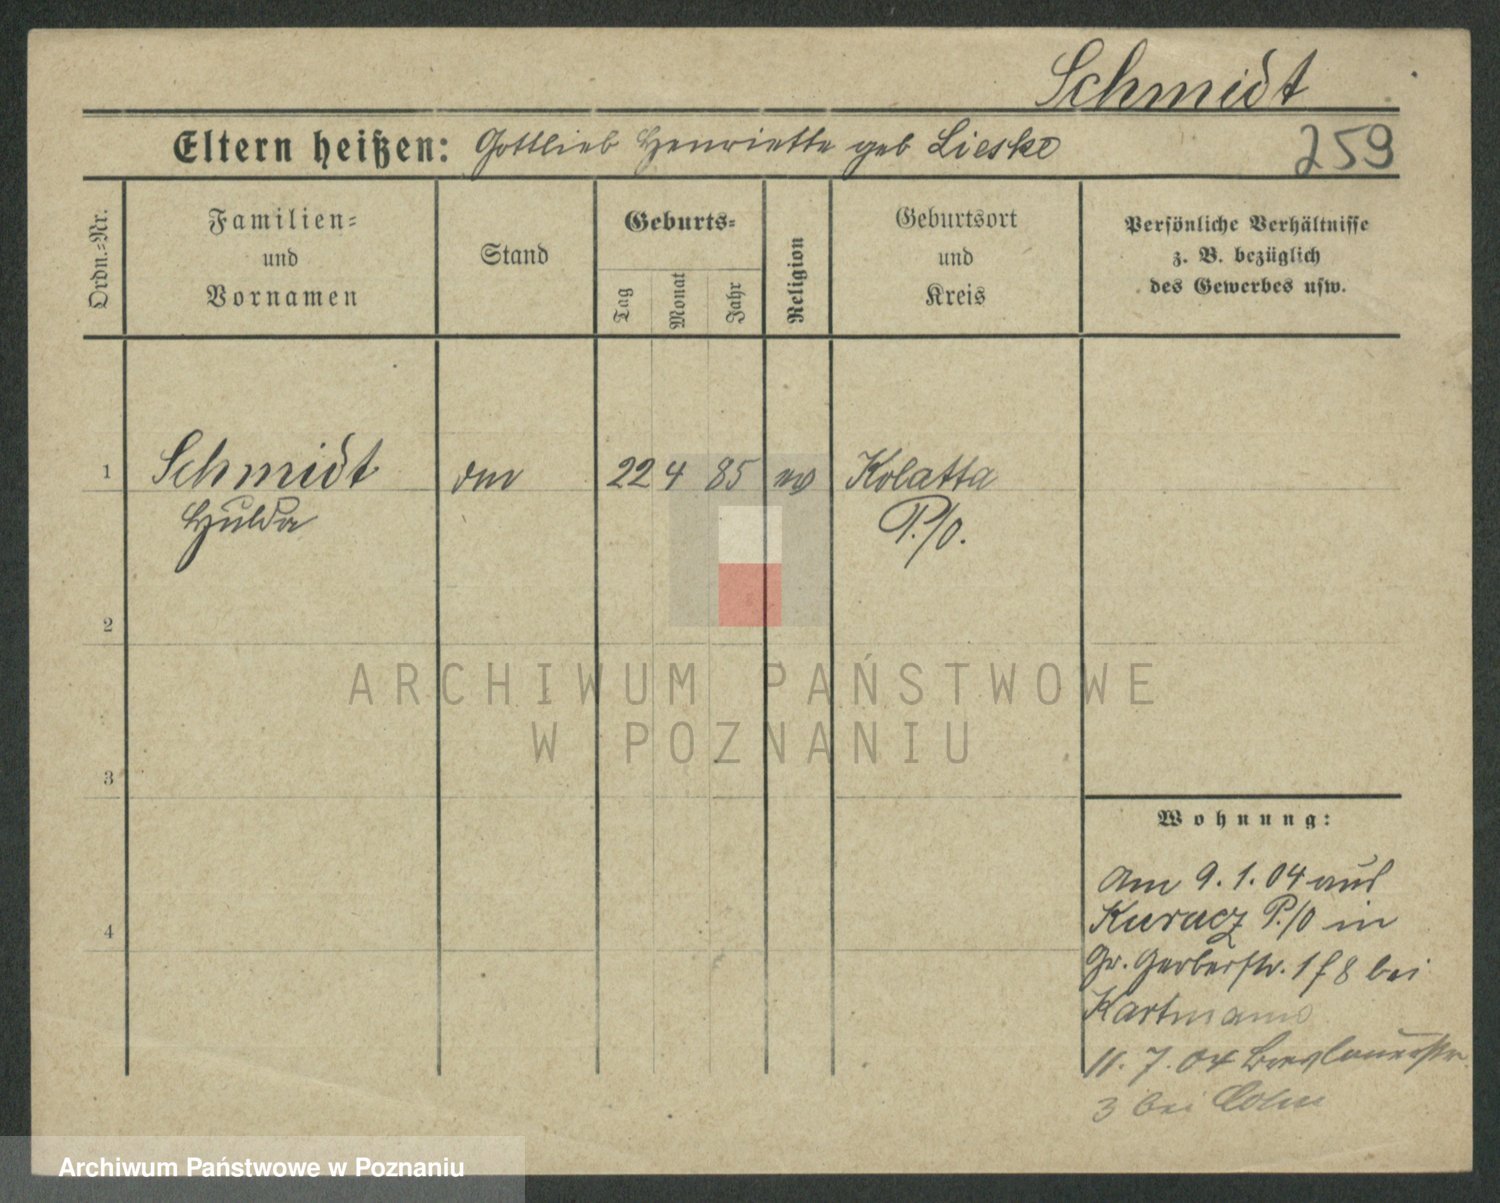 Schmidt
Eltern heißen: Gottlieb Henriette geb Lieske
259
Ordn.=Nr.
Familien=
und
Vornamen
Stand
Geburts=
Tag
Monat
Jahr
Religion
Geburtsort
und
Kreis
Persönliche Verhältnisse
z. B. bezüglich
des Gewerbes usw.
1 Schmidt 22 4 85 ev Kolatta
Hulda P./O.
2
ARCHIWUM PAŃSTWOWE
W POZNANIU
3
Wohnung:
Am 9. 1. 04 aus
4 Kuracz P./O in
Gr. Gerberstr. 18 bei
11. 7. 04 Breslauerstr.
3 bei
Archiwum Państwowe w Poznaniu